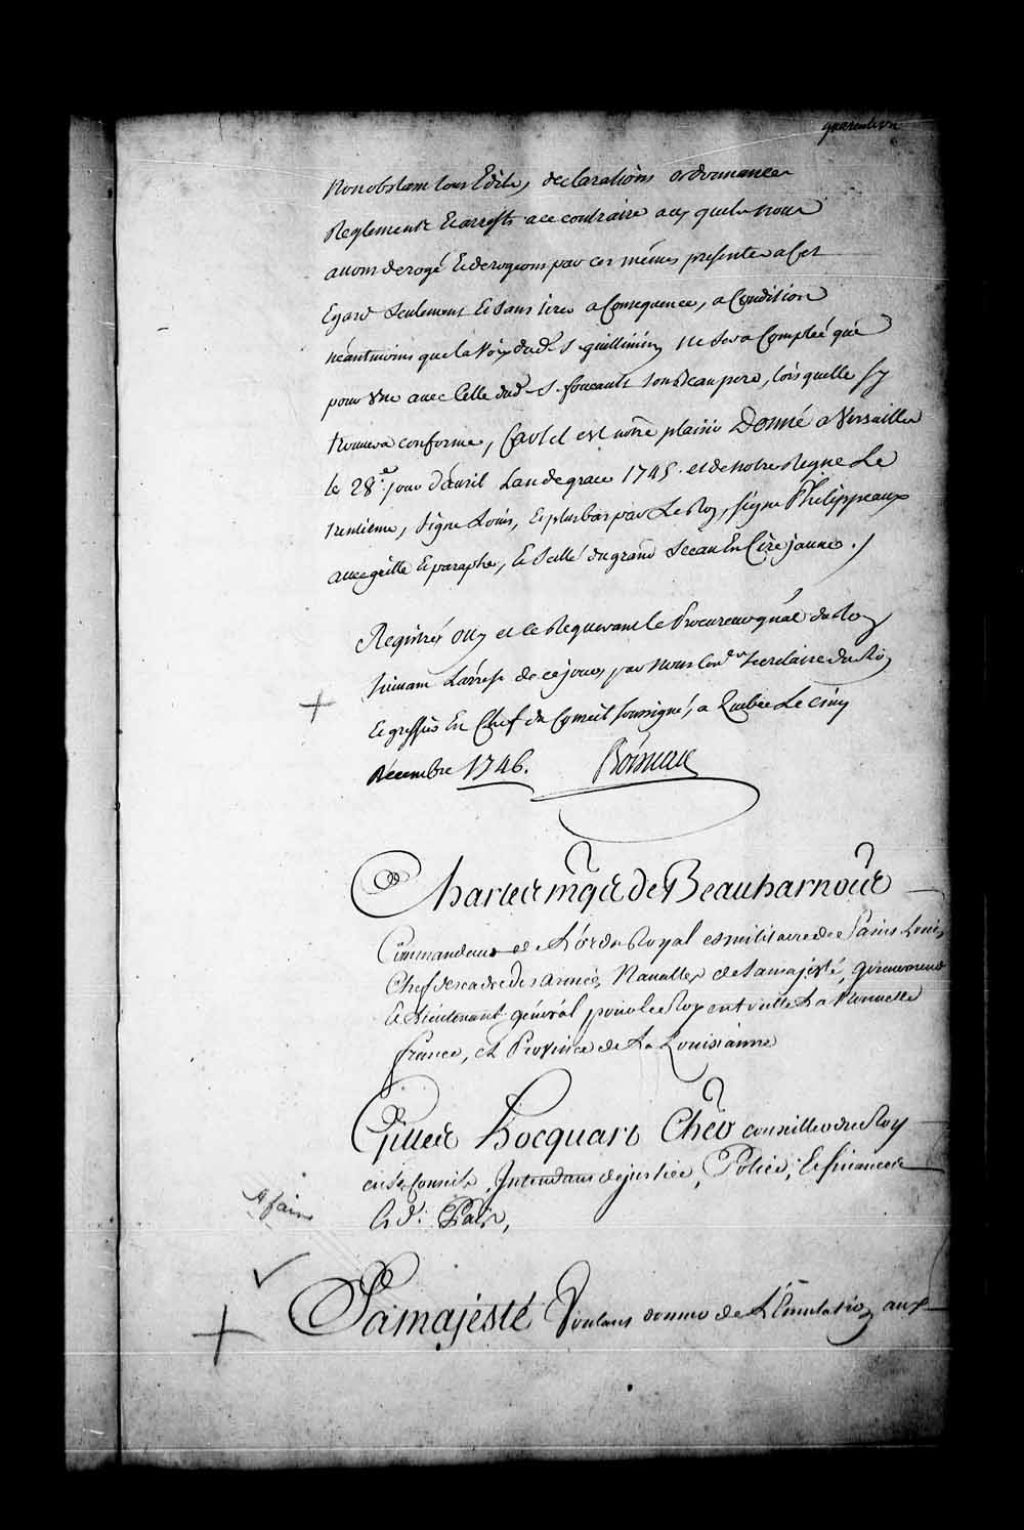 quarante un
Nonobstant tous Edits, declarations ordonnances
Reglements et arrests a ce contraire aux quels nous
avons derogé et derogeons par ces mémes presentes a cet
Egard seulement et sans tirer a Consequence, a Condition
néantmoins que la Voix dud. S. guillimin ne sera Comptée que
pour une avec Celle dud. S. foucault son Beaupere, lors quelle sy
trouvera conforme, Car tel est notre plaisir Donné a Versailles
le 28.e jour d'avril Lan de grace 1745. et de notre Regne Le
trentieme, signé Louis, et plus bas par Le Roy, signé Phelippeaux
avec grille et paraphe, et scellé du grand sceau En Cire jaune ./
Registré Ouy et ce Requerant le Procureur gnal du Roy
suivant L'arrest de ce jour, par nous Con.er secretaire du Roy
et greffier En Chef du Conseil soussigné, a Quebec Le cinq
Décembre 1746. Boisseau
Charles mqis de Beauharnois
Commandeur de L'ordre Royal et militaire de Saint Louis
Chef d'escadre des armées Navalles de sa majesté, gouverneur
et Lieutenant général pour le Roy en toutte La Nouvelle
france, et Province de La Louisianne
Gilles hocquart Cher conseiller du Roy
en ses Conseils, Intendant de justice, Police, et finances
Esd. Païs,
Sa majesté Voulant donner de L'Emulation aux